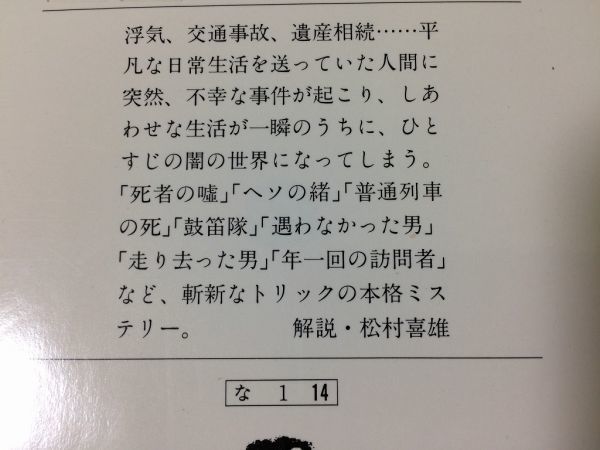 浮気、交通事故、遺産相続……平
凡な日常生活を送っていた人間に
突然、不幸な事件が起こり、しあ
わせな生活が一瞬のうちに、ひと
すじの闇の世界になってしまう。
「死者の嘘」「ヘソの緒」「普通列車
の死」「鼓笛隊」「遇わなかった男」
「走り去った男」「年一回の訪問者」
など、斬新なトリックの本格ミス
テリー。　　　　解説・松村喜雄
な 1 14